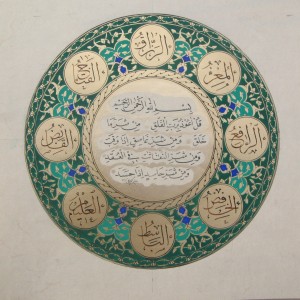 بسم الله الرحمن الرحيم
قل أعوذ برب الفلق من شر ما
خلق ومن شر غاسق إذا وقب
ومن شر النفاثات في العقد
ومن شر حاسد إذا حسد
الرزاق
الفتاح
المعز
القابض
الرافع
العليم
الخافض
الباسط